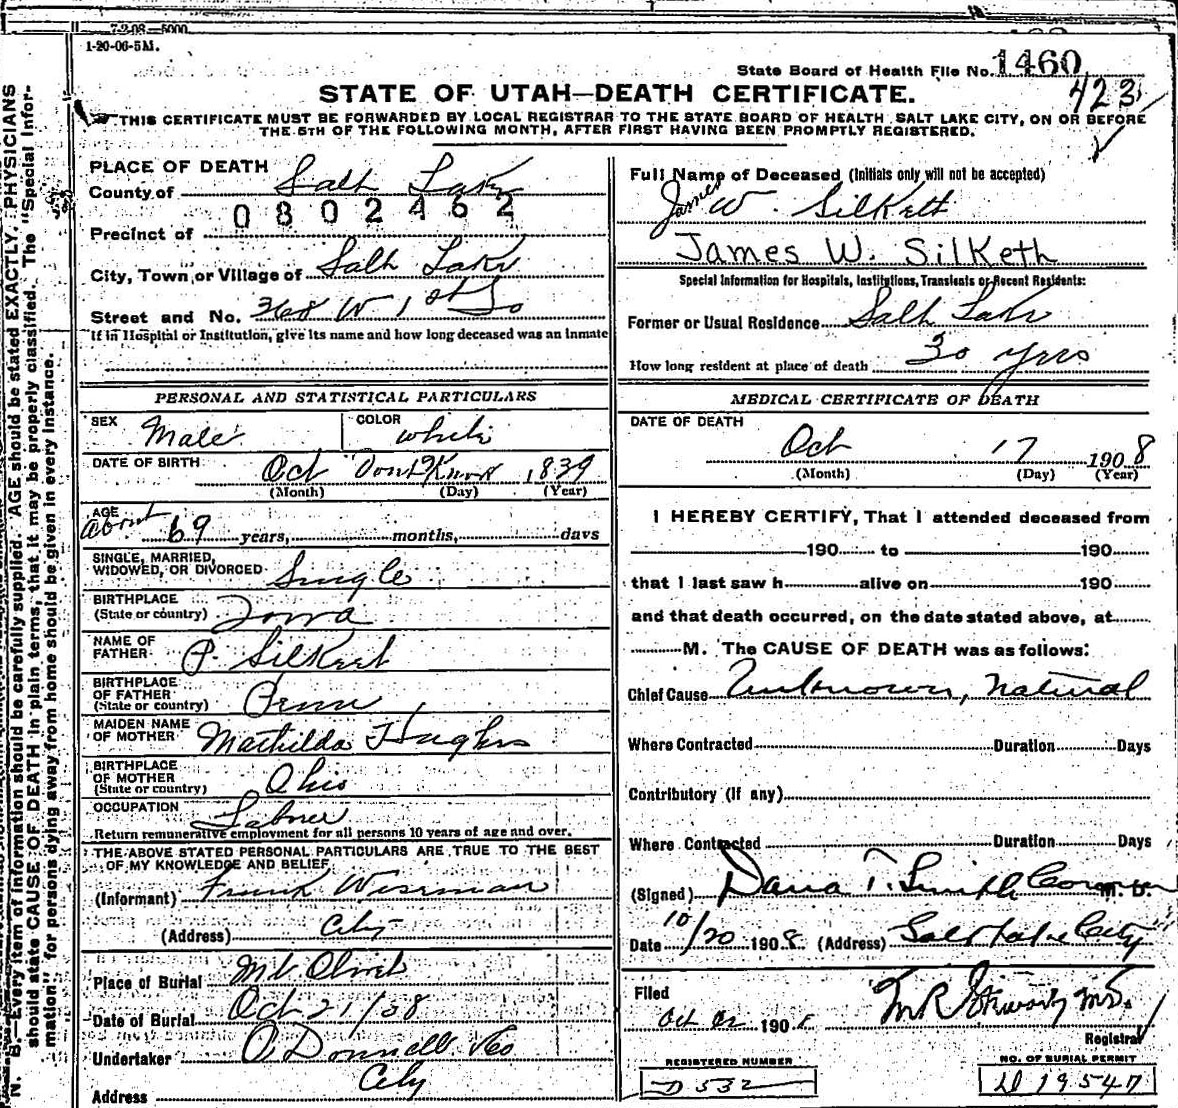 7-2-08—5000
1-20-06-5M.
State Board of Health File No. 1460
423
STATE OF UTAH—DEATH CERTIFICATE.
THIS CERTIFICATE MUST BE FORWARDED BY LOCAL REGISTRAR TO THE STATE BOARD OF HEALTH SALT LAKE CITY, ON OR BEFORE
THE 5TH OF THE FOLLOWING MONTH, AFTER FIRST HAVING BEEN PROMPTLY REGISTERED.
PLACE OF DEATH
County of Salt Lake
0802462
Precinct of
City, Town or Village of Salt Lake
Street and No. 368 W 1st So
If in Hospital or Institution, give its name and how long deceased was an inmate
PERSONAL AND STATISTICAL PARTICULARS
SEX Male COLOR white
DATE OF BIRTH Oct Dont Know 1839
(Month) (Day) (Year)
AGE
about 69 years, months, days
SINGLE, MARRIED,
WIDOWED, OR DIVORCED Single
BIRTHPLACE
(State or country) Iowa
NAME OF
FATHER P. Silkett
BIRTHPLACE
OF FATHER
(State or country) Penn
MAIDEN NAME
OF MOTHER Mathilda Hughes
BIRTHPLACE
OF MOTHER
(State or country) Ohio
OCCUPATION Laborer
Return remunerative employment for all persons 10 years of age and over.
THE ABOVE STATED PERSONAL PARTICULARS ARE TRUE TO THE BEST
OF MY KNOWLEDGE AND BELIEF
(Informant) Frank Wiseman
(Address) City
Place of Burial Mt Olivet
Date of Burial Oct 21/08
Undertaker O'Donnell & Co
Address City
Full Name of Deceased (Initials only will not be accepted)
James W. Silkett
James W. Silketh
Special Information for Hospitals, Institutions, Transients or Recent Residents:
Former or Usual Residence Salt Lake
How long resident at place of death 30 yrs
MEDICAL CERTIFICATE OF DEATH
DATE OF DEATH
Oct 17 1908
(Month) (Day) (Year)
I HEREBY CERTIFY, That I attended deceased from
190 to 190
that I last saw h alive on 190
and that death occurred, on the date stated above, at
M. The CAUSE OF DEATH was as follows:
Chief Cause Unknown, Natural
Where Contracted Duration Days
Contributory (if any)
Where Contracted Duration Days
(Signed) Dana T. Smith Coroner M. D.
Date 10/20 1908 (Address) Salt Lake City
Filed
Oct 190 M R Stewart MD.
Registrar
REGISTERED NUMBER
D 532
NO. OF BURIAL PERMIT
D 19547
N. B.—Every item of information should be carefully supplied. AGE should be stated EXACTLY. PHYSICIANS
should state CAUSE OF DEATH in plain terms, that it may be properly classified. The "Special Infor-
mation" for persons dying away from home should be given in every instance.